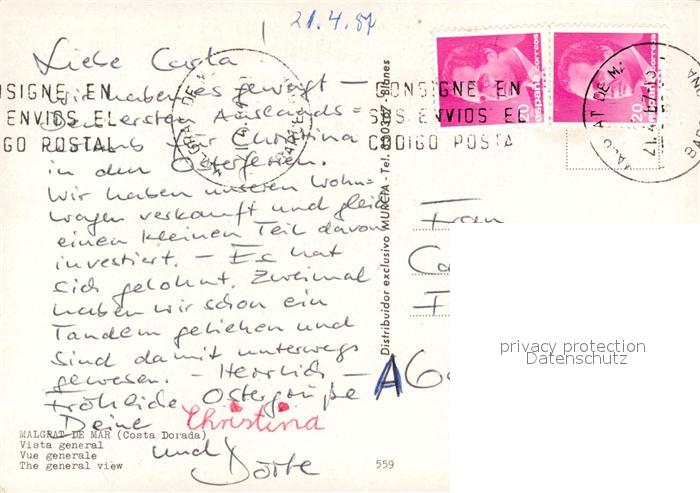 21.4.87
Liebe Carta
Wir haben es gewagt –
Den ersten Auslands=
für Christina
in den Osterferien.
Wir haben unseren Wohn=
wagen verkauft und gleich
einen kleinen Teil davon
investiert. – Es hat
sich gelohnt. Zweimal
haben wir schon ein
Tandem geliehen und
sind damit unterwegs
gewesen. – Herrlich –
Fröhliche Ostergrüße
Deine Christina
und Dörte
MALGRAT DE MAR (Costa Dorada)
Vista general
Vue generale
The general view
559
Distribuidor exclusivo MURCIA - Tel. 330367 - Blanes
CONSIGNE EN
SUS ENVIOS EL
CODIGO POSTAL
CONSIGNE EN
SUS ENVIOS EL
CODIGO POSTA
20 españa correos
20 españa correos
MALGRAT DE M.
Frau
Ca
F
A6
privacy protection
Datenschutz